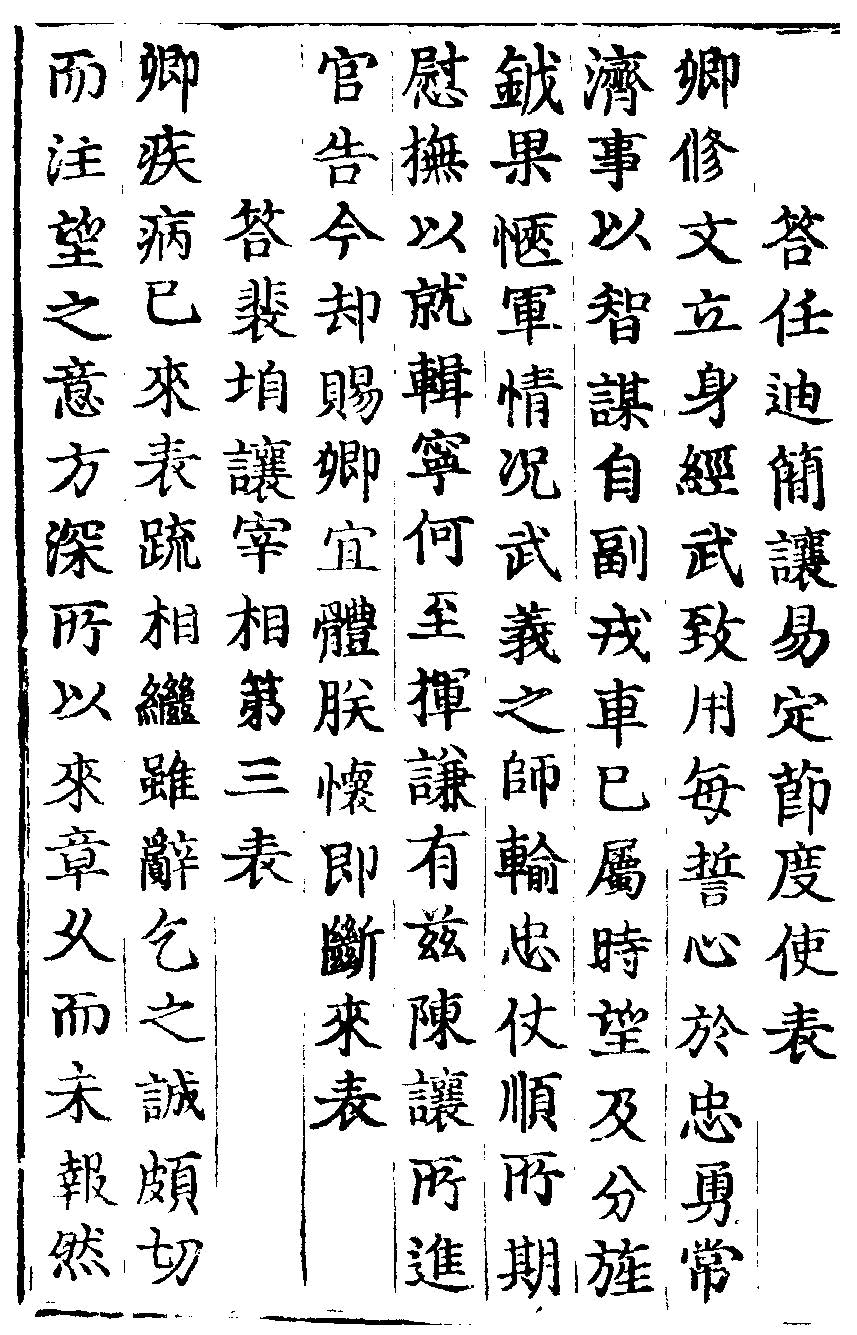 答任迪簡讓易定節度使表
卿修文立身經武致用每誓心於忠勇常
濟事以智謀自副戎車已屬時望及分旌
鉞果愜軍情况武義之師輸忠仗順所期
慰撫以就輯寧何至撝謙有兹陳讓所進
官告今却賜卿宜體朕懷即斷來表
答裴垍讓宰相第三表
卿疾病已來表疏相繼雖辭乞之誠頗切
而注望之意方深所以來章久而未報然